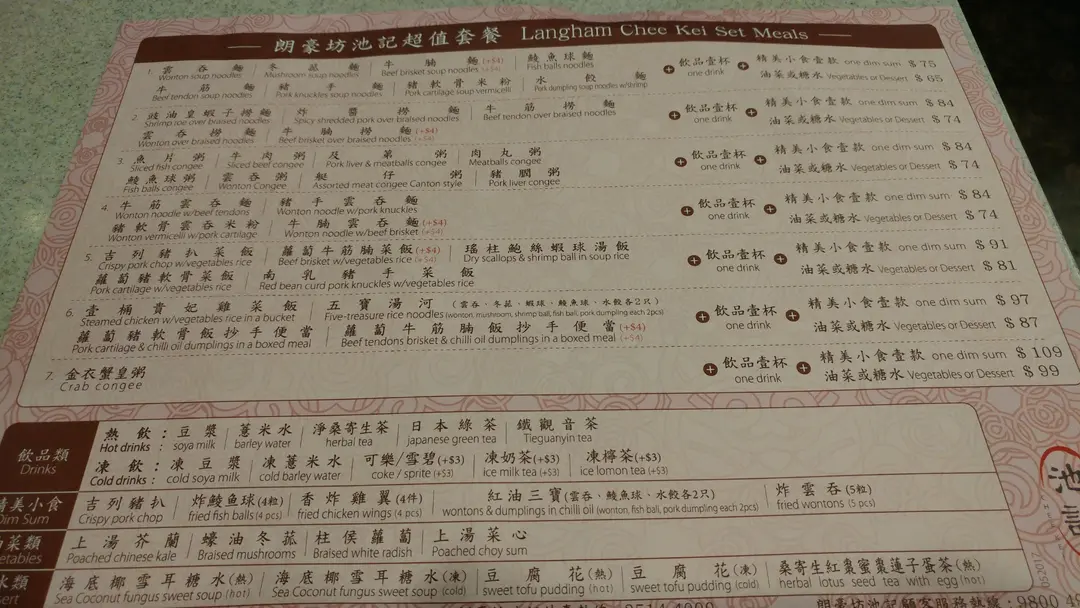 朗豪坊池記超值套餐 Langham Chee Kei Set Meals
1. 雲吞麵 冬菇麵 牛腩麵(+$4) 鯪魚球麵
Wonton soup noodles Mushroom soup noodles Beef brisket soup noodles (+$4) Fish balls noodles
牛筋麵 豬手麵 豬軟骨米粉 水餃麵
Beef tendon soup noodles Pork knuckles soup noodles Pork cartilage soup vermicelli Pork dumpling soup noodles w/shrimp
飲品壹杯 one drink
精美小食壹款 one dim sum $ 75
油菜或糖水 Vegetables or Dessert $ 65
2. 豉油皇蝦子撈麵 炸醬撈麵 牛筋撈麵
Shrimp roe over braised noodles Spicy shredded pork over braised noodles Beef tendon over braised noodles
雲吞撈麵 牛腩撈麵(+$4)
Wonton over braised noodles Beef brisket over braised noodles (+$4)
飲品壹杯 one drink
精美小食壹款 one dim sum $ 84
油菜或糖水 Vegetables or Dessert $ 74
3. 魚片粥 牛肉粥 及第粥 肉丸粥
Sliced fish congee Sliced beef congee Pork liver & meatballs congee Meatballs congee
鯪魚球粥 雲吞粥 艇仔粥 豬膶粥
Fish balls congee Wonton Congee Assorted meat congee Canton style Pork liver congee
飲品壹杯 one drink
精美小食壹款 one dim sum $ 84
油菜或糖水 Vegetables or Dessert $ 74
4. 牛筋雲吞麵 豬手雲吞麵
Wonton noodle w/beef tendons Wonton noodle w/pork knuckles
豬軟骨雲吞米粉 牛腩雲吞麵(+$4)
Wonton vermicelli w/pork cartilage Wonton noodle w/beef brisket (+$4)
飲品壹杯 one drink
精美小食壹款 one dim sum $ 84
油菜或糖水 Vegetables or Dessert $ 74
5. 吉列豬扒菜飯 蘿蔔牛筋腩菜飯(+$4) 瑤柱鮑絲蝦球湯飯
Crispy pork chop w/vegetables rice Beef brisket w/vegetables rice (+$4) Dry scallops & shrimp ball in soup rice
蘿蔔豬軟骨菜飯 南乳豬手菜飯
Pork cartilage w/vegetables rice Red bean curd pork knuckles w/vegetables rice
飲品壹杯 one drink
精美小食壹款 one dim sum $ 91
油菜或糖水 Vegetables or Dessert $ 81
6. 壹桶貴妃雞菜飯 五寶湯河(雲吞、冬菇、蝦球、鯪魚球、水餃各2只)
Steamed chicken w/vegetables rice in a bucket Five-treasure rice noodles (wonton, mushroom, shrimp ball, fish ball, pork dumpling each 2pcs)
蘿蔔豬軟骨飯抄手便當 蘿蔔牛筋腩飯抄手便當(+$4)
Pork cartilage & chilli oil dumplings in a boxed meal Beef tendons brisket & chilli oil dumplings in a boxed meal (+$4)
飲品壹杯 one drink
精美小食壹款 one dim sum $ 97
油菜或糖水 Vegetables or Dessert $ 87
7. 金衣蟹皇粥
Crab congee
飲品壹杯 one drink
精美小食壹款 one dim sum $ 109
油菜或糖水 Vegetables or Dessert $ 99
飲品類
Drinks
熱飲: 豆漿 薏米水 淨桑寄生茶 日本綠茶 鐵觀音茶
Hot drinks : soya milk barley water herbal tea japanese green tea Tieguanyin tea
凍飲: 凍豆漿 凍薏米水 可樂/雪碧(+$3) 凍奶茶(+$3) 凍檸茶(+$3)
Cold drinks : cold soya milk cold barley water coke / sprite (+$3) ice milk tea (+$3) ice lomon tea (+$3)
精美小食
Dim Sum
吉列豬扒 炸鯪魚球(4粒) 香炸雞翼(4件) 紅油三寶(雲吞、鯪魚球、水餃各2只) 炸雲吞(5粒)
Crispy pork chop fried fish balls (4 pcs) fried chicken wings (4 pcs) wontons & dumplings in chilli oil (wonton, fish ball, pork dumpling each 2pcs) fried wontons (5 pcs)
菜類
上湯芥蘭 蠔油冬菰 柱侯蘿蔔 上湯菜心
Poached chinese kale Braised mushrooms Braised white radish Poached choy sum
水類
海底椰雪耳糖水(熱) 海底椰雪耳糖水(凍) 豆腐花(熱) 豆腐花(凍) 桑寄生紅棗蜜棗蓮子蛋茶(熱)
Sea Coconut fungus sweet soup (hot) Sea Coconut fungus sweet soup (cold) sweet tofu pudding (hot) sweet tofu pudding (cold) herbal lotus seed tea with egg (hot)
池記